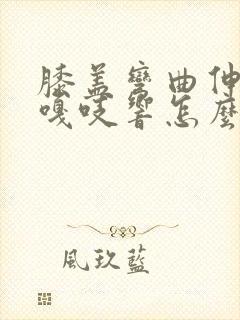 膝盖彎曲伸
嘎吱響怎麼
風玖藍